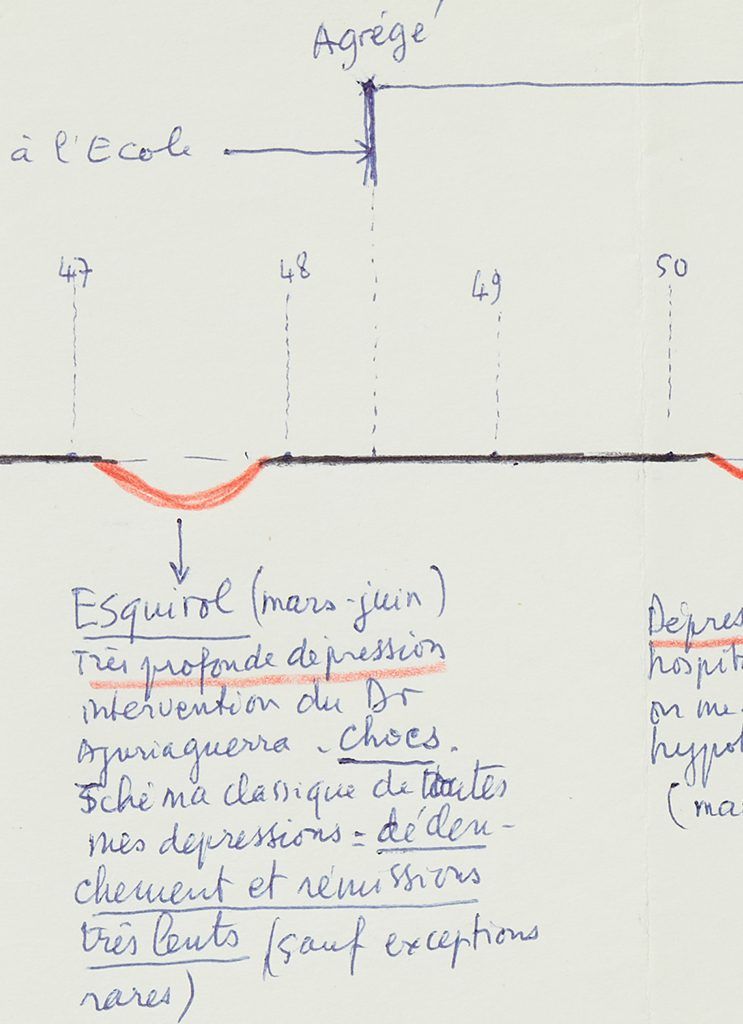 Agrégé
à l'Ecole
47
48
49
50
Esquirol (mars-juin)
Très profonde dépression
intervention du Dr
Ajuriaguerra - Chocs.
Schéma classique de toutes
mes depressions = déclen-
chement et rémissions
très lents (sauf exceptions
rares)
Dépres
hospit
on me
hypot
(ma